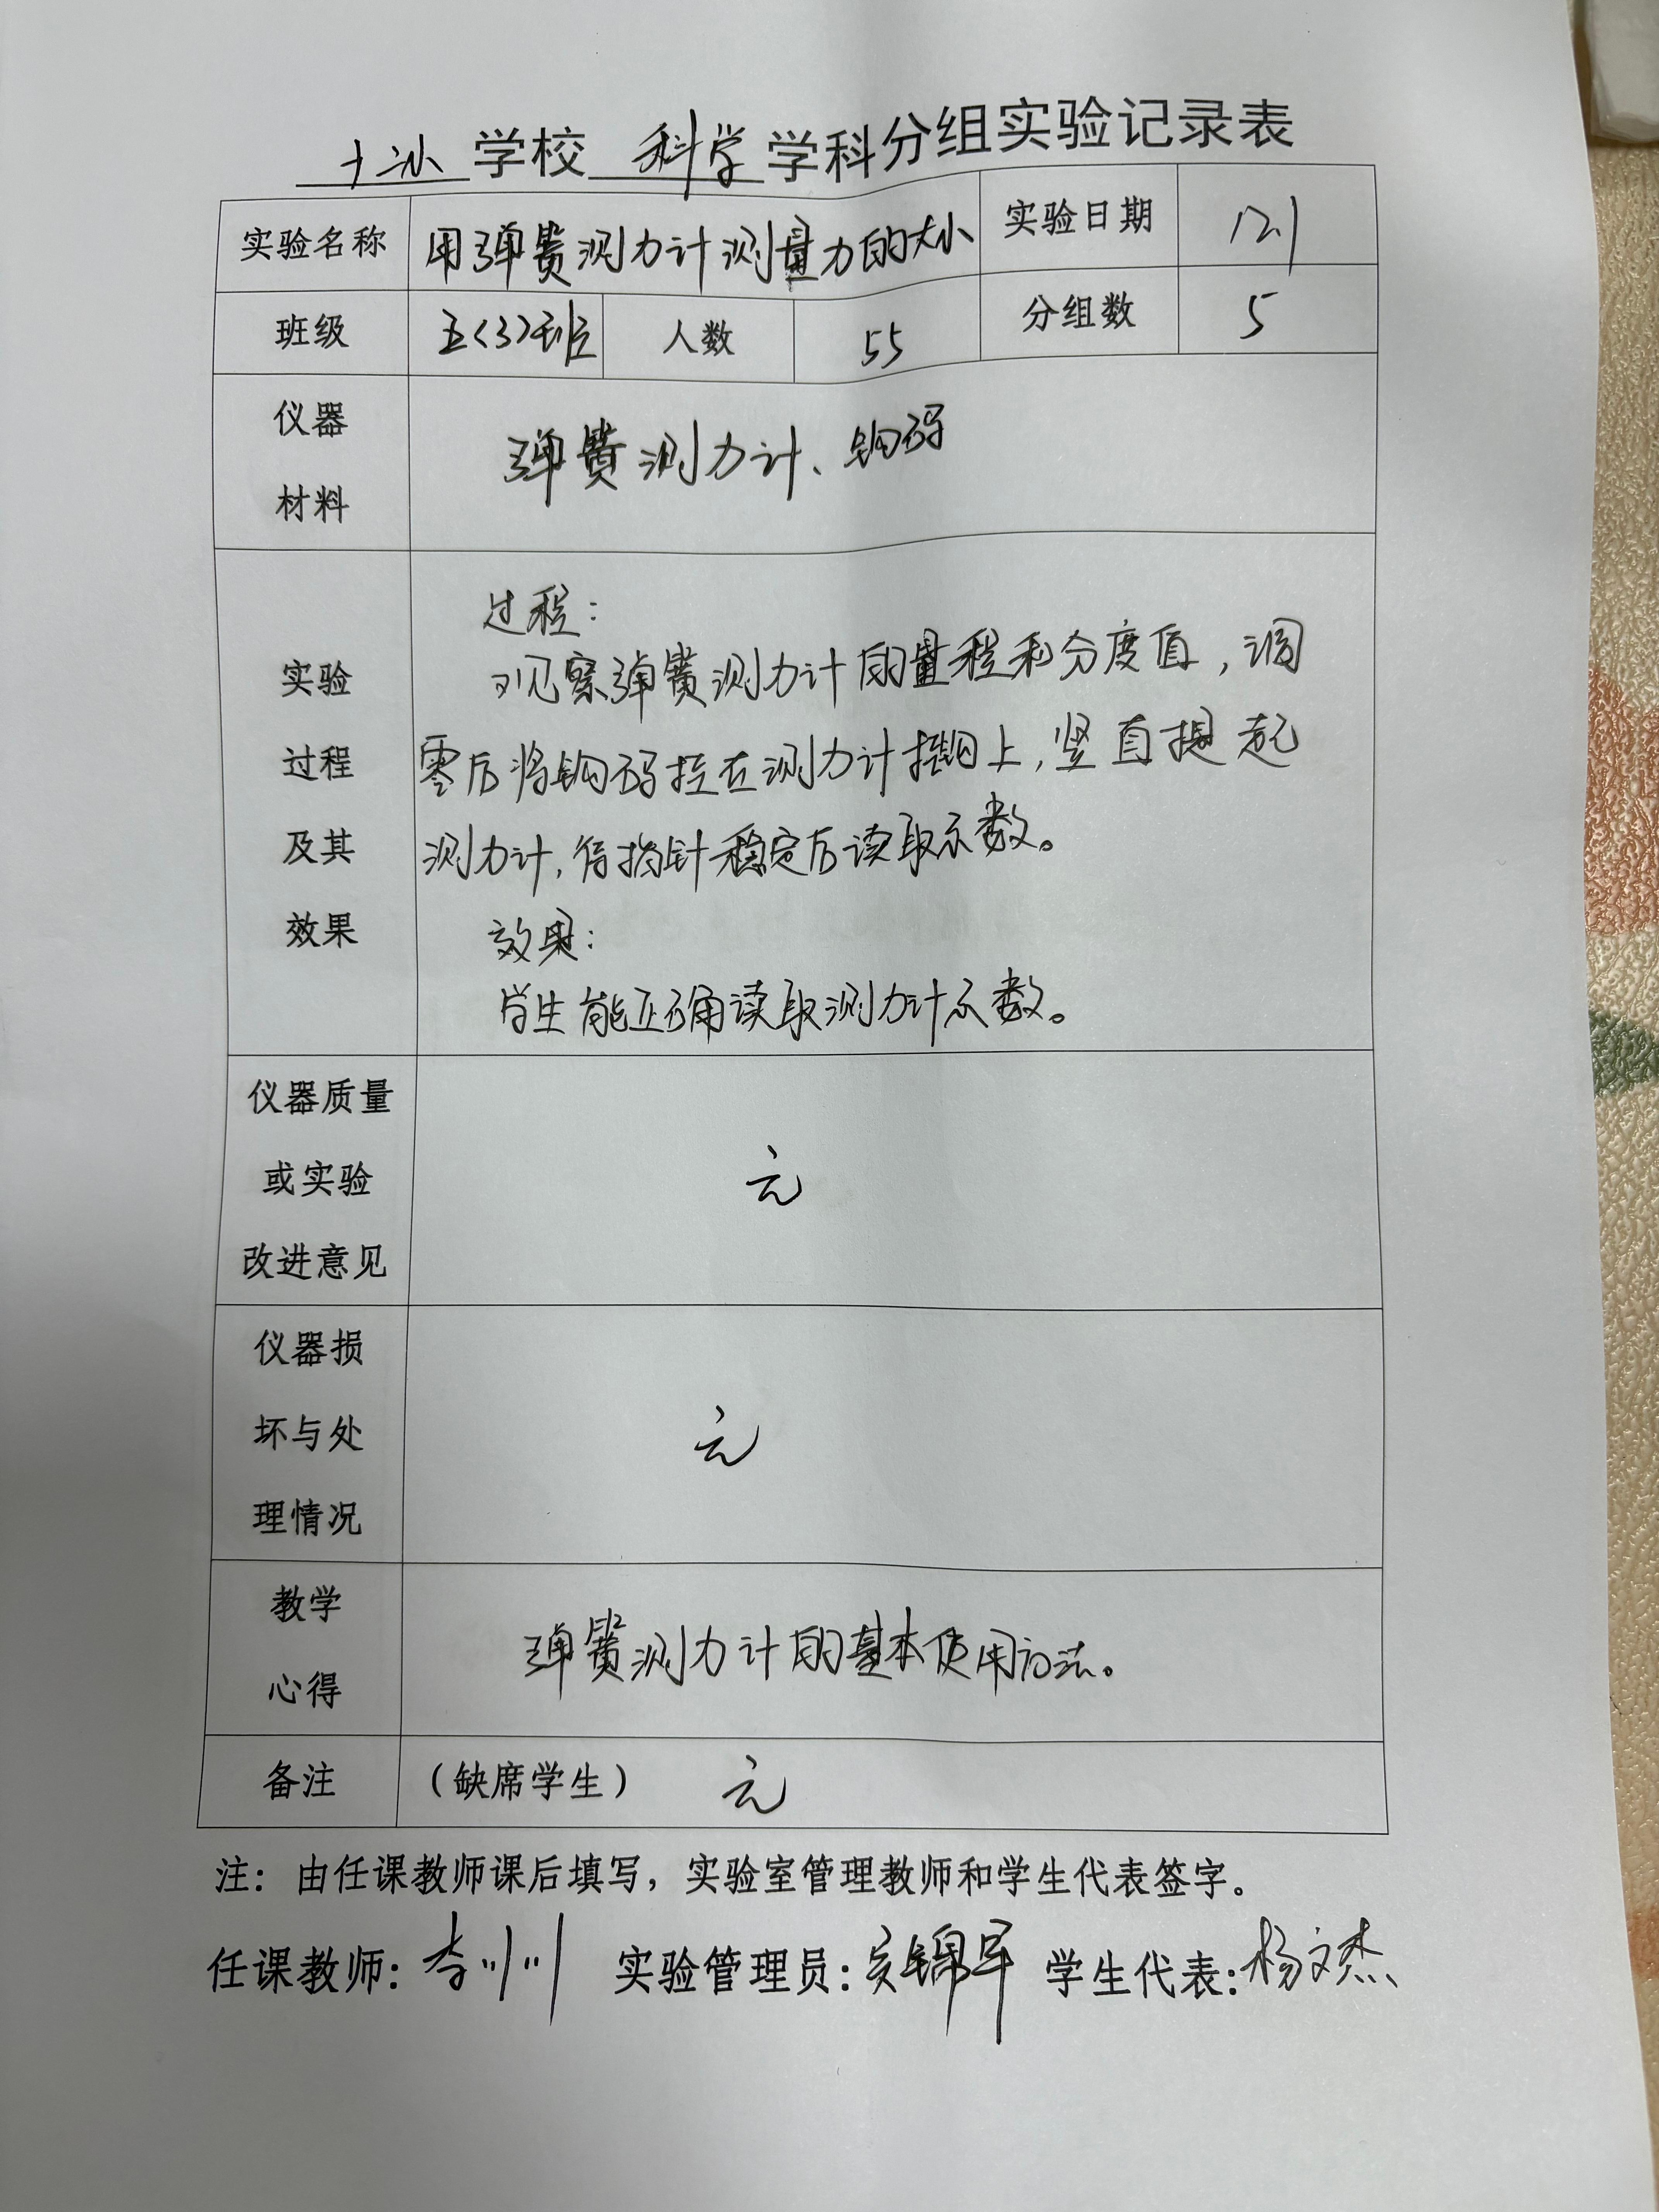 十小 学校 科学 学科分组实验记录表
实验名称 用弹簧测力计测量力的大小 实验日期 12.1
班级 五(3)班 人数 55 分组数 5
仪器
材料
弹簧测力计、钩码
实验
过程
及其
效果
过程:
观察弹簧测力计的量程和分度值,调
零后将钩码挂在测力计挂钩上,竖直提起
测力计,待指针稳定后读取示数。
效果:
学生能正确读取测力计示数。
仪器质量
或实验
改进意见
无
仪器损
坏与处
理情况
无
教学
心得
弹簧测力计的基本使用方法。
备注 (缺席学生) 无
注:由任课教师课后填写,实验室管理教师和学生代表签字。
任课教师: 实验管理员: 学生代表:杨文杰